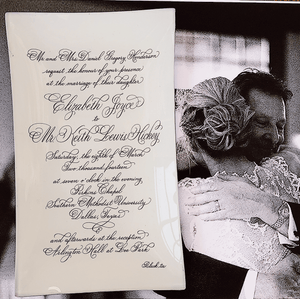 Mr. and Mrs. Daniel Gregory Henderson
request the honour of your presence
at the marriage of their daughter
Elizabeth Joyce
to
Mr. Keith Lewis Hickey
Saturday, the eighth of March
Two thousand fourteen
at seven o'clock in the evening
Perkins Chapel
Southern Methodist University
Dallas, Texas
&
and afterwards at the reception
Arlington Hall at Lee Park
Black tie